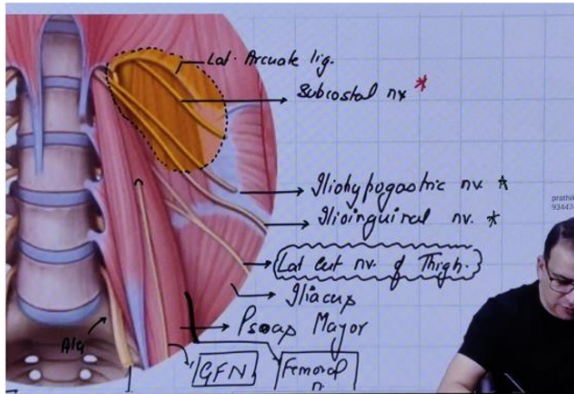 Lat. Arcuate lig.
Subcostal nv *
Iliohypogastric nv. *
Ilioinguinal nv. *
Lat cut nv. of Thigh.
Iliacus
Psoas Mayor
Ala
GFN
Femoral
n.